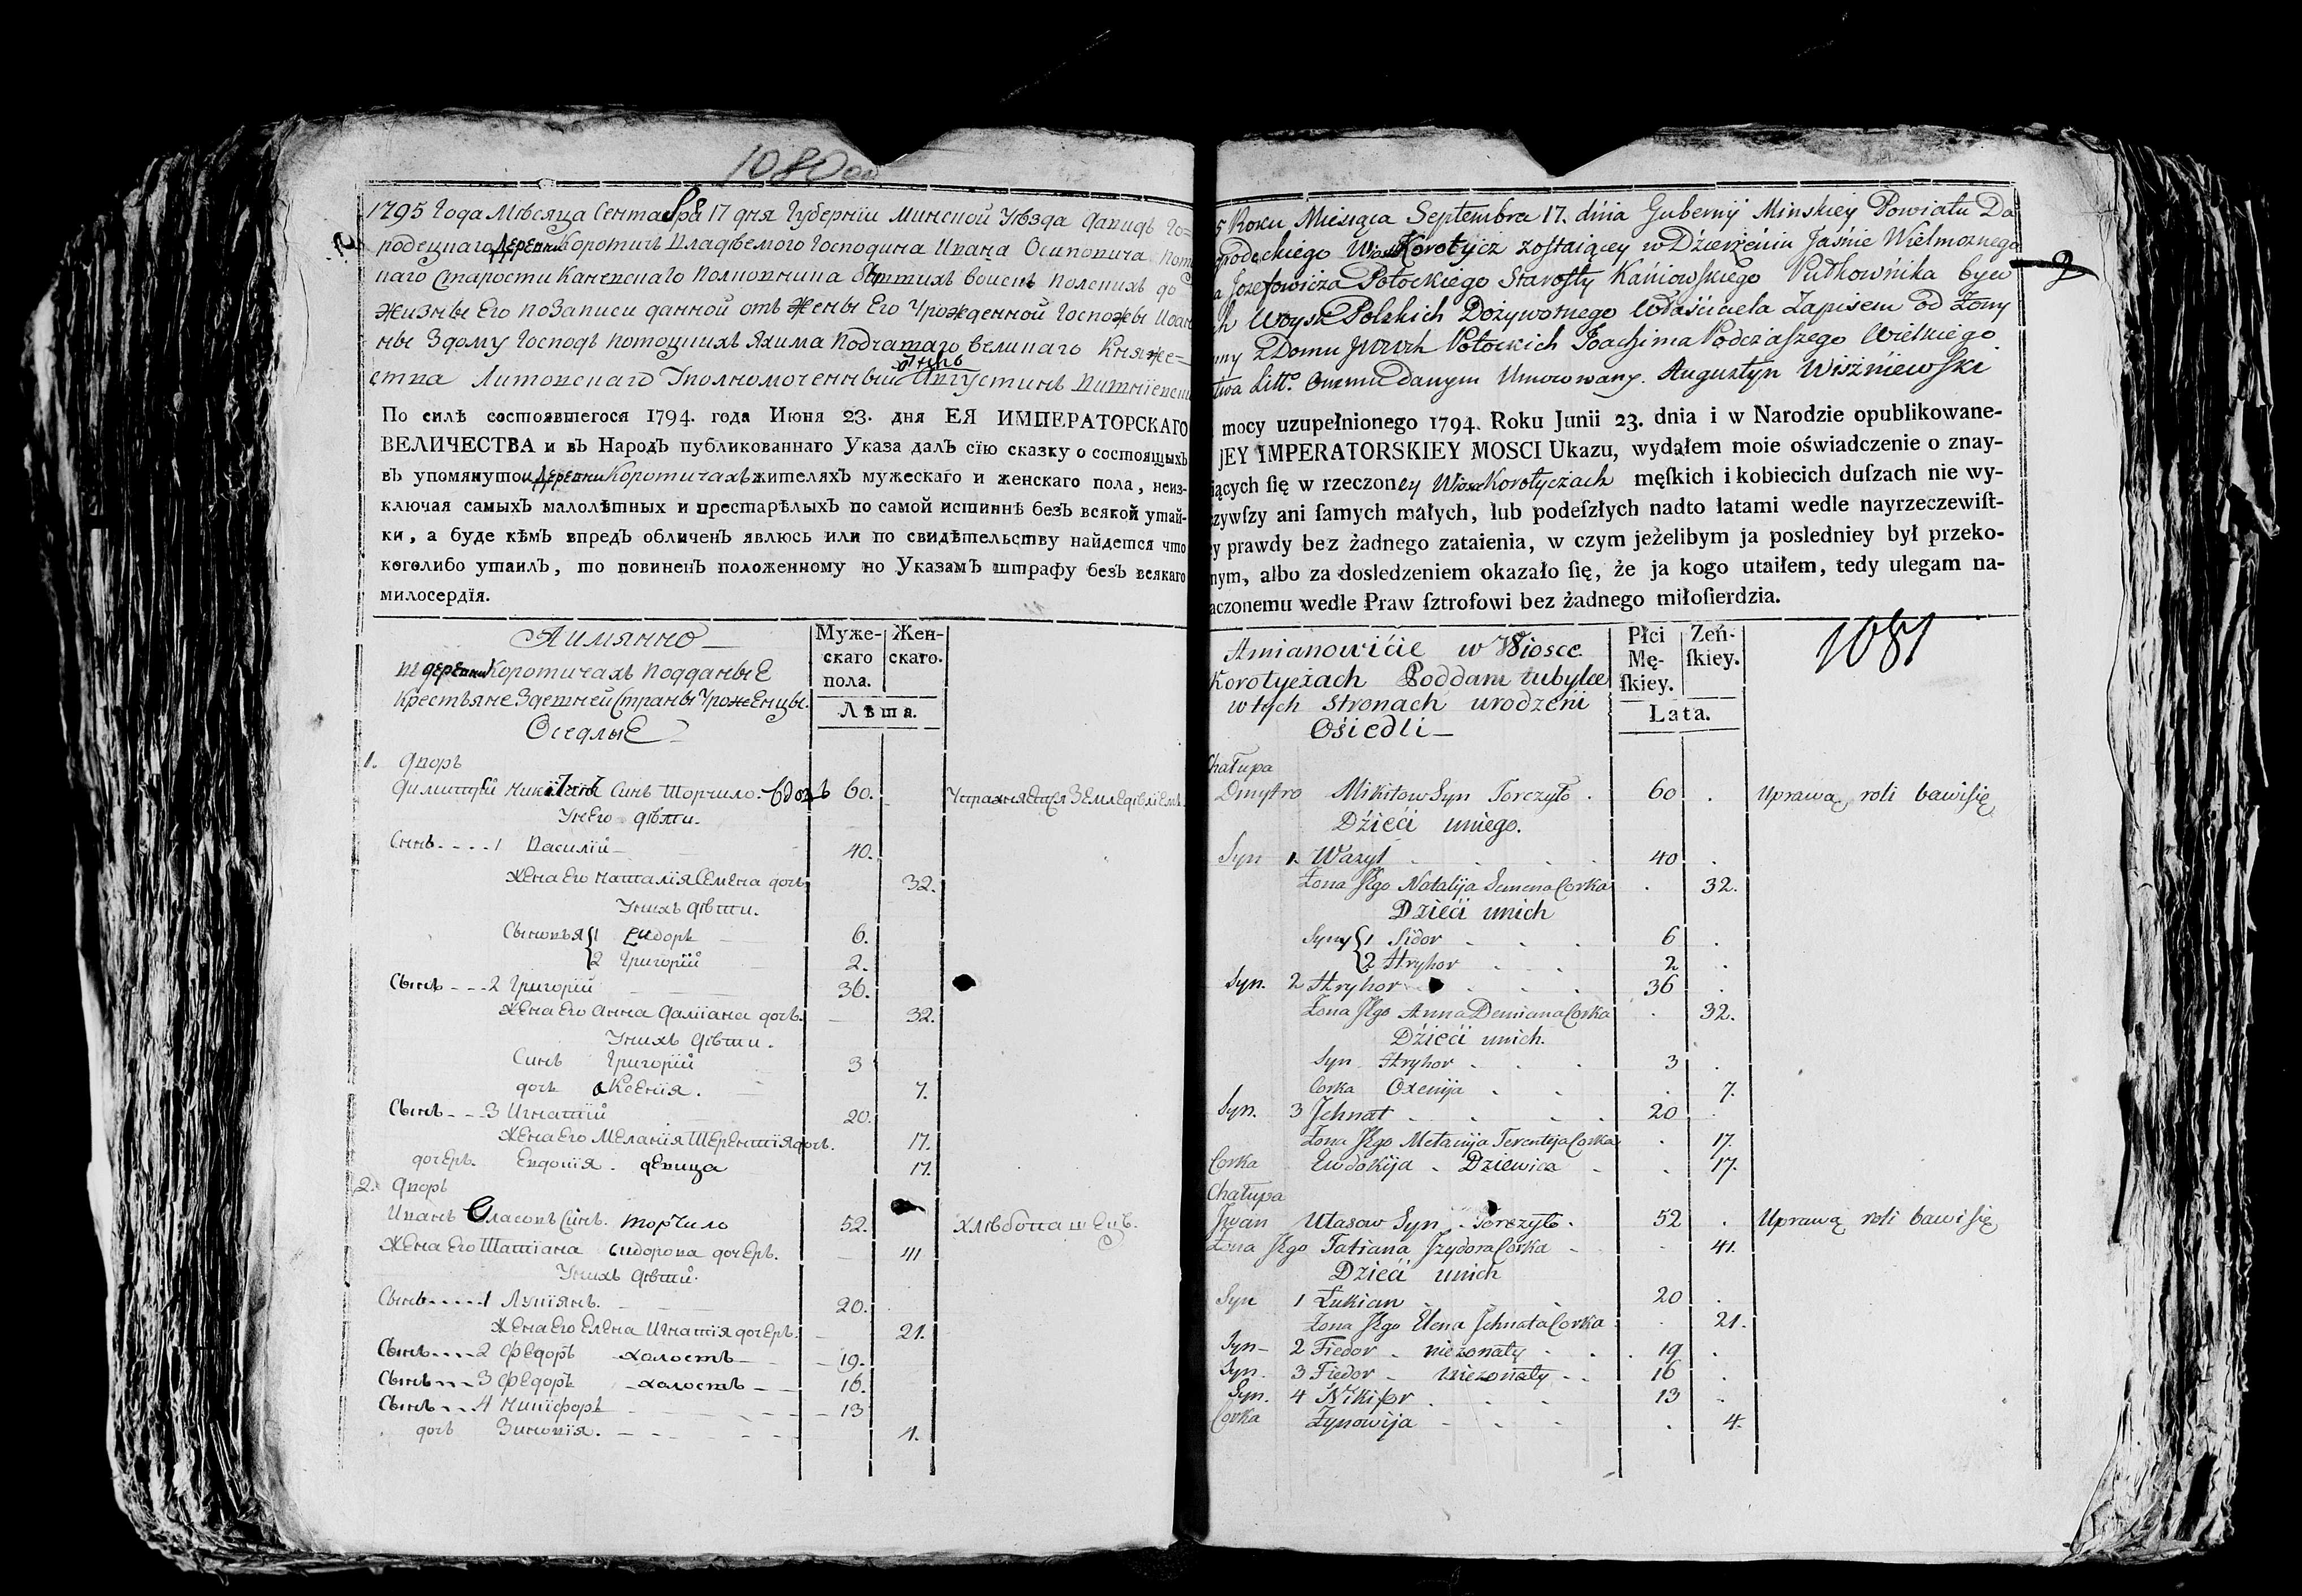 1080
1795 Года Мѣсяца Сентабра 17 дня Губернїи Минской Уѣзда Давидъ Го=
родецкаго Деревни Коротичъ Владѣемого Господина Ивана Осиповича Пот
каго Старости Каневскаго Полковника бывшихъ воискъ Полскихъ до
жизны Его по Записи данной отъ жены Его Урожденной Госпожы Иоан
ны Здому Господъ Потоцкихъ Яхима Подчашаго великаго Княже=
ства Литовскаго Уполномоченный Августинъ Вишнїевски
По силѣ состоявшегося 1794. года Июня 23. дня ЕЯ ИМПЕРАТОРСКАГО
ВЕЛИЧЕСТВА и въ Народъ публикованнаго Указа далъ сїю сказку о состоящыхъ
въ упомянутои Деревни Коротичахъ жителяхъ мужескаго и женскаго пола, неиз-
ключая самыхъ малолѣтных и престарѣлыхъ по самой истиннѣ безъ всякой утай-
ки, а буде кѣмъ впредъ обличенъ явлюсь или по свидѣтельству найдется что
коголибо утаилъ, то повиненъ положенному по Указамъ штрафу безъ всякаго
милосердїя.
Аимянно
въ деревни Коротичахъ Подданые
Крестьяне Здешней Страны Уроженцы.
Оседлые
Муже-
скаго
пола.
Жен-
скаго.
Лѣта.
1. Дворъ
Димитрїй Никитинъ Синъ Торчило - вдовъ 60. Упражняется Земледѣлїемъ.
У него дѣти.
Синъ 1 Василїй 40.
Жена Его Наталїя Семена дочь 32.
У нихъ дѣти.
Сыновья 1 Сидоръ 6.
2 Григорїй 2.
Сынъ 2 Григорїй 36.
Жена Его Анна Дамїана дочь. 32.
У нихъ дѣти.
Синъ Григорїй 3
дочь Ксенїя. 7.
Сынъ 3 Игнатїй 20.
Жена Его Меланїя Терентїя дочь. 17.
дочерь. Евдокїя. девица 17.
2. Дворъ
Иванъ Власовъ Синъ. Торчило 52. хлѣбопашецъ.
Жена Его Татїана Сидорова дочерь. 41
У нихъ дѣти.
Сынъ 1 Лукїянъ. 20.
Жена Его Елена Игнатїя дочерь. 21.
Сынъ 2 Федоръ холостъ 19.
Сынъ 3 Федоръ холостъ 16.
Сынъ 4 Никїфоръ 13
дочь Зиновїя. 4.
5 Roku Miesiąca Septembra 17. dńia Gubernÿ Minskiey Powiatu Da
grodeckiego Wioski Korotycz zostaiącey w Dzierżeniu Jaśnie Wielmożnego
a Jozefowicza Potockiego Starosty Kaniowskiego Pułkownika byw
h Woysk Polskich Dożywotnego Właściciela Zapisem od Żony
nny z Domu JWWch Potockich Joachima Podczaszego Wielkiego
twa Litt. danym Umocowany. Augustyn Wiszniewski
mocy uzupełnionego 1794. Roku Junii 23. dnia i w Narodzie opublikowane-
JEY IMPERATORSKIEY MOSCI Ukazu, wydałem moie oświadczenie o znay-
iących ſię w rzeczoney Wiosce Korotyczach męſkich i kobiecich duſzach nie wy-
zywſzy ani ſamych małych, lub podeſzłych nadto łatami wedle nayrzeczewiſt-
ey prawdy bez żadnego zataienia, w czym jeżelibym ja posledniey był przeko-
nym, albo za dosledzeniem okazało ſię, że ja kogo utaiłem, tedy ulegam na-
aczonemu wedle Praw ſztrofowi bez żadnego miłoſierdzia.
Amianowićie w Wiosce
Korotyczach Poddani tubylce
w tych Stronach urodzeni
Ośiedli
Płci
Mę-
ſkiey.
Zeń-
ſkiey.
Lata.
1081
Chałupa
Dmytro Mikitow Syn Torczyło. 60 Uprawą roli bawi się
Dźieći uniego.
Syn 1. Wasyl 40
Żona Jego Natalija Semena Corka 32.
Dzieći unich
Syny 1 Sidor 6
2 Hryhor 2
Syn. 2 Hryhor 36
Żona Jego Anna Demiana Corka 32.
Dźieći unich.
Syn Hryhor 3
Corka Oxenija 7.
Syn. 3 Jchnat 20
Żona Jego Mełanija Terentija Corka 17.
Corka Ewdokija Dziewica 17.
Chałupa
Jwan Ułasow Syn Torczyło. 52 Uprawą roli bawi się
Żona Jego Tatiana Jzydora Corka 41.
Dzieći unich
Syn 1 Łukian 20
Żona Jego Elena Jchnata Corka 21.
Syn 2 Fiedor nieżonaty 19
Syn. 3 Fiedor nieżonaty 16
Syn. 4 Nikifor 13
Corka Zynowija 4.